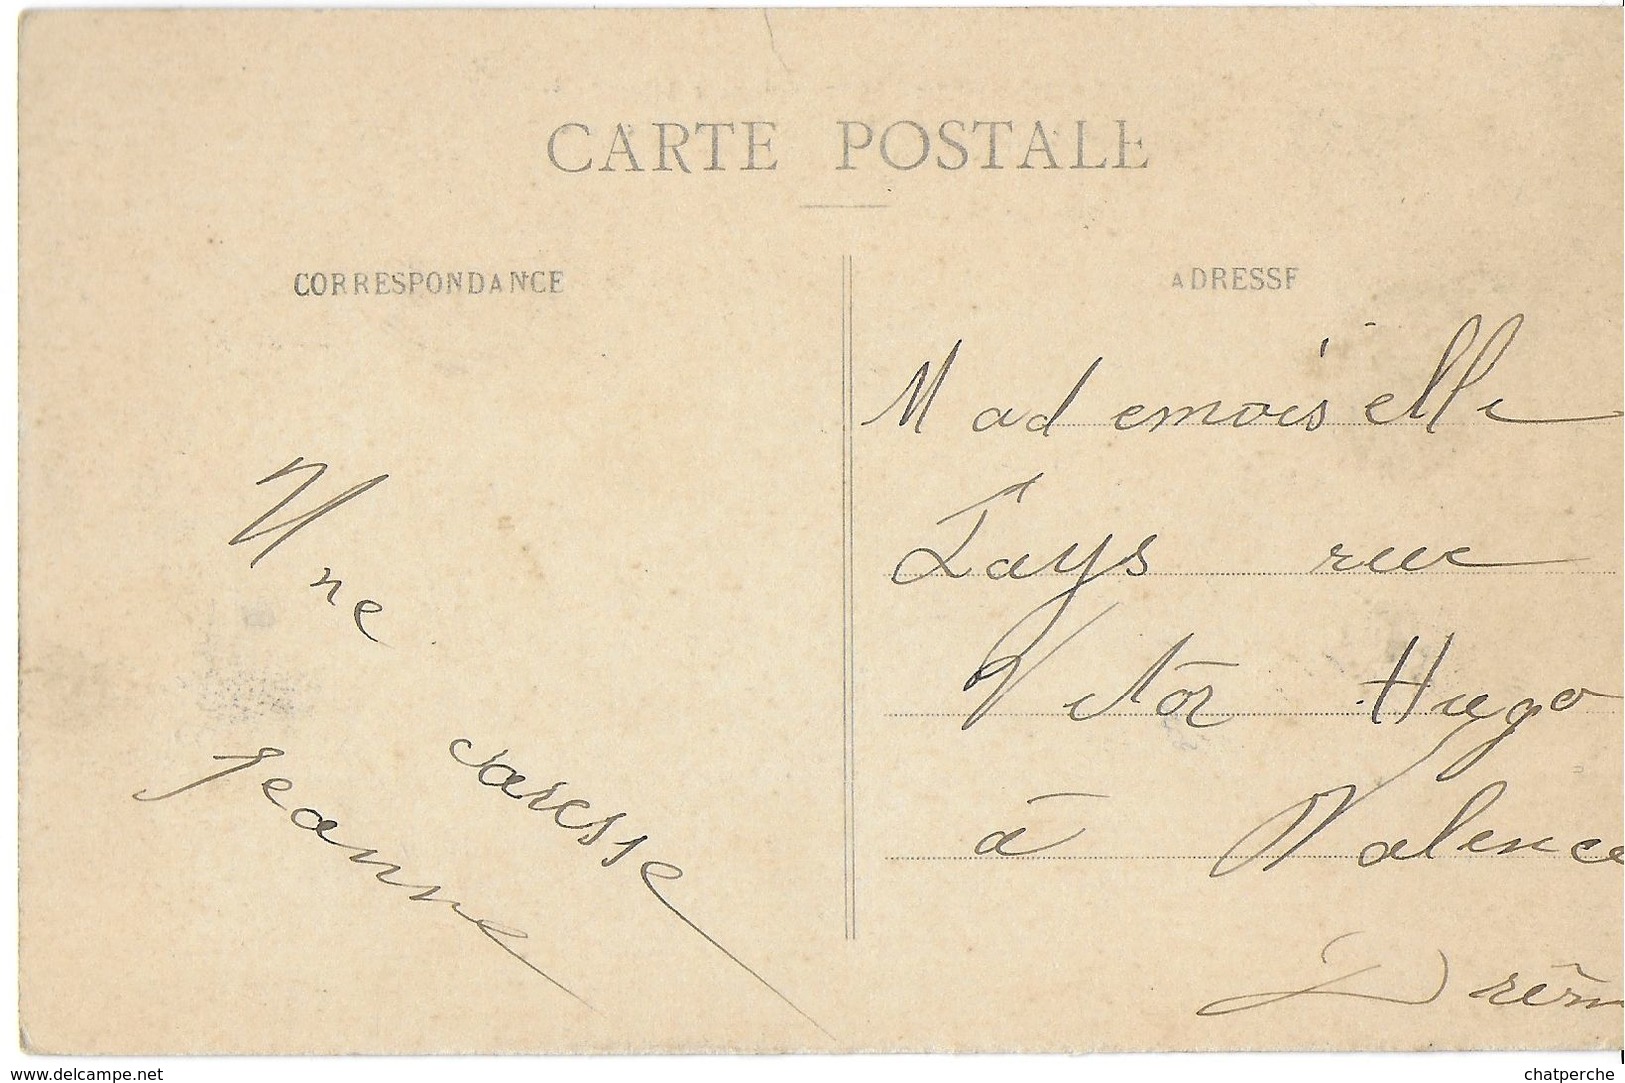 CARTE POSTALE
CORRESPONDANCE
ADRESSE
Une caresse
Jeanne
Mademoiselle
Fays rue
Victor Hugo
à Valence
Drôm
www.delcampe.net
chatperche